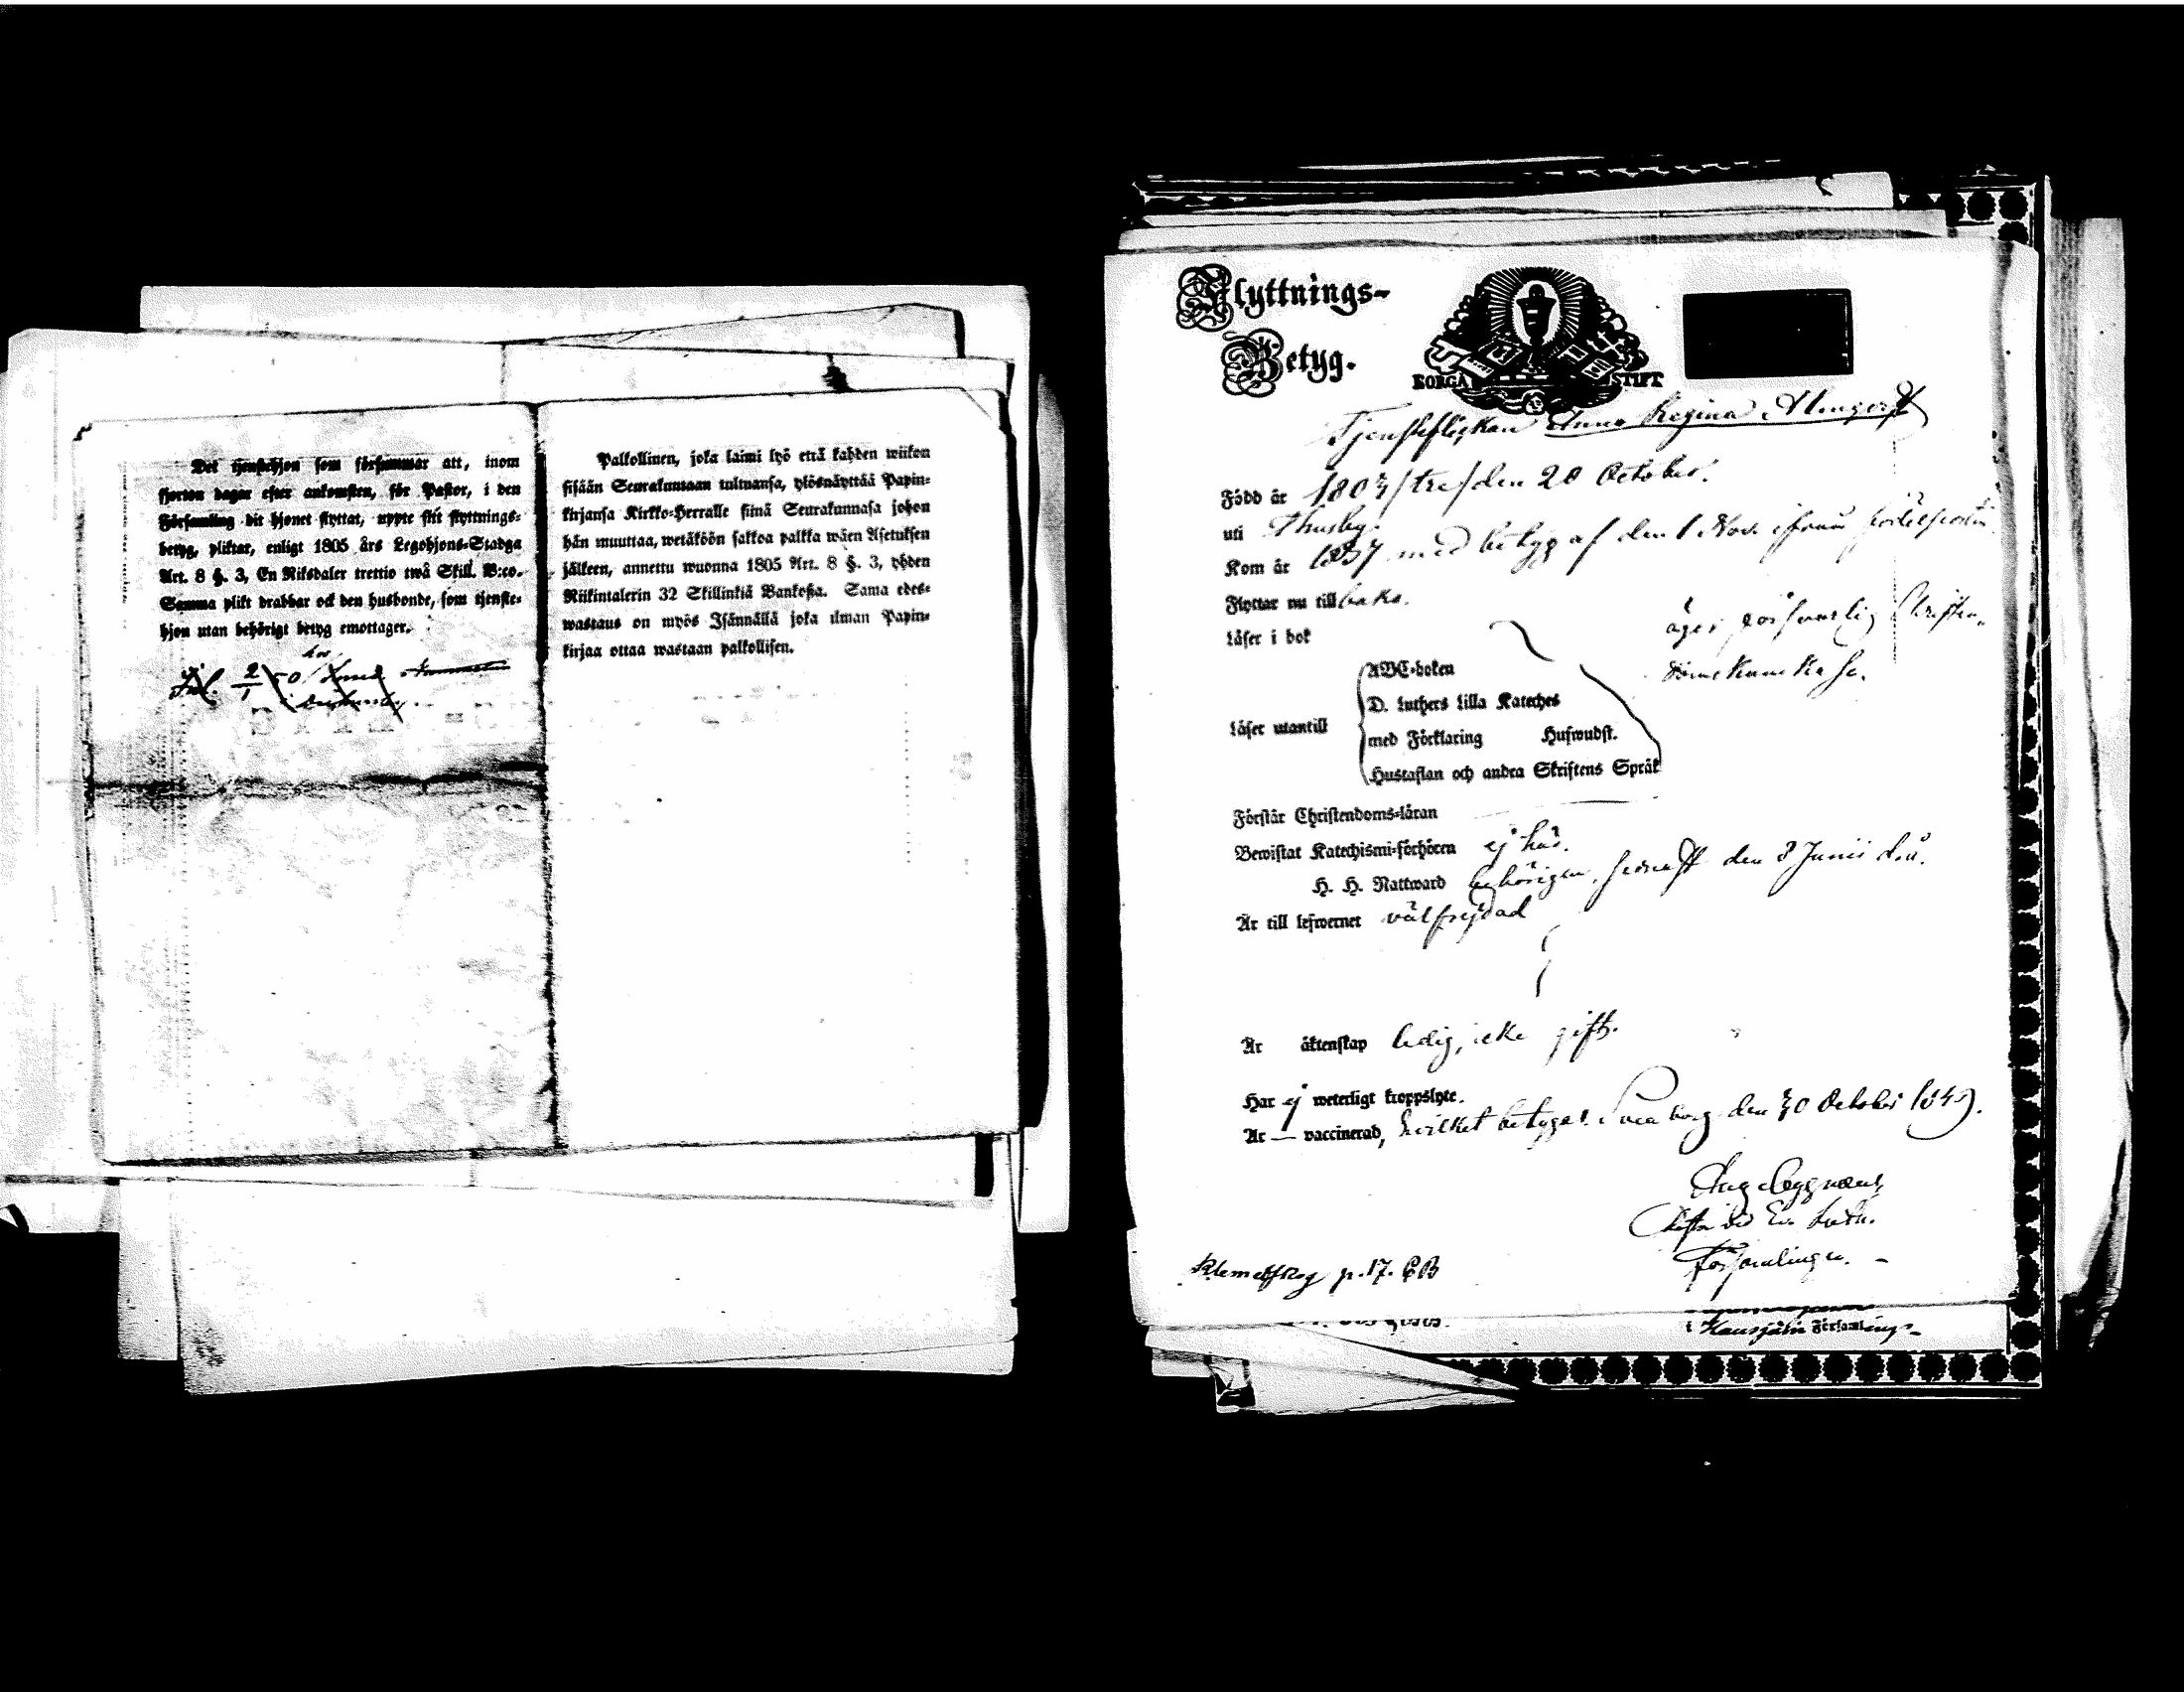 Det tjenstehjon som försummar att, inom
fjorton dagar efter ankomsten, för Pastor, i den
Församling dit hjonet flyttat, uppte sitt flyttnings-
betyg, pliktar, enligt 1805 års Legohjons-Stadga
Art. 8 §. 3, En Riksdaler trettio twå Skill. B:co.
Samma plikt drabbar ock den husbonde, som tjenste-
hjon utan behörigt betyg emottager.
hos
2/1 50
Palkollinen, joka laimi lyö että kahden wiikon
sisään Seurakuntaan tultuansa, ylösnäyttää Papin-
kirjansa Kirkko-Herralle siinä Seurakunnasa johon
hän muuttaa, wetäköön sakkoa palkka wäen Asetuksen
jälkeen, annettu wuonna 1805 Art. 8 §. 3, yhden
Riikintalerin 32 Skillinkiä Bankosa. Sama edes-
wastaus on myös Isännällä joka ilman Papin-
kirjaa ottaa wastaan palkollisen.
Flyttnings-
Betyg.
BORGÅ STIFT
Tjensteflickan Anna Regina
Född år 1803/tre/den 20 October.
uti Thusby.
Kom år 1837 med betyg af den 1 Nov. ifrån
Flyttar nu till baka.
Läser i bok
äger försvarlig Christen-
doms kunskap.
ABC-boken
D. Luthers Lilla Kateches
Läser utantill
med Förklaring Hufwudst.
Hustaflan och andra Skriftens Språk
Förstår Christendoms-läran
Bewistat Katechismi-förhören ej här.
H. H. Nattward behörigen, senast den 8 Junii d.å.
Är till lefwernet välfrejdad
Är äktenskap ledig, icke gift.
Har ej weterligt kroppslyte.
Är — vaccinerad, hvilket betygar. Sveaborg den 30 October 1845.
vid Ev. Luth.
Församlingen.
Klemetskog p. 17. CB
i Hausjärvi Församlings-